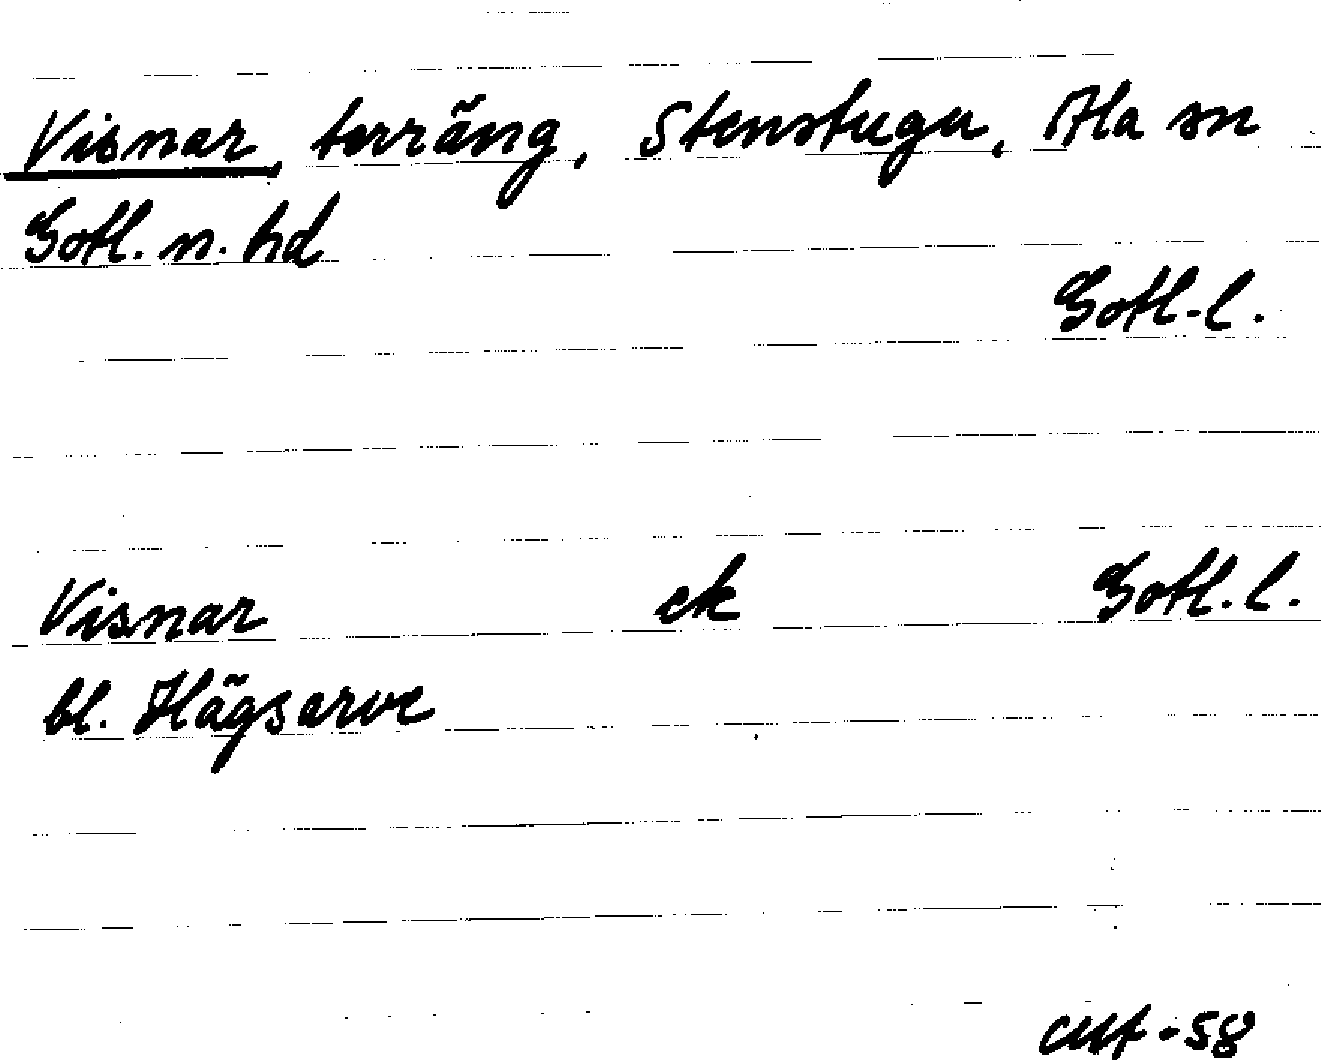 Visnar, terräng, Stenstugu, Ala sn
Gotl. n. hd
Gotl. l.
Visnar ek Gotl. l.
bl. Hägsarve
-58